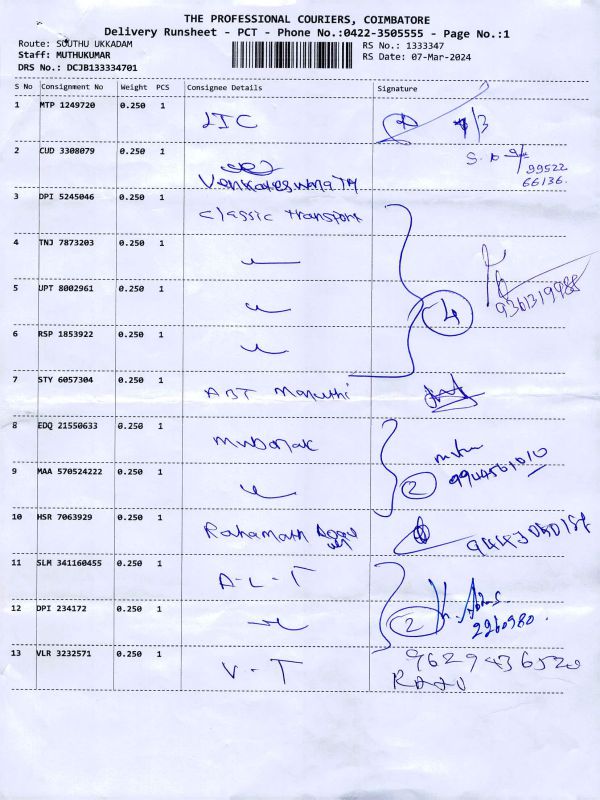 THE PROFESSIONAL COURIERS, COIMBATORE
Delivery Runsheet - PCT - Phone No.:0422-3505555 - Page No.:1
Route: SOUTHU UKKADAM RS No.: 1333347
Staff: MUTHUKUMAR RS Date: 07-Mar-2024
DRS No.: DCJB133334701
S No Consignment No Weight PCS Consignee Details Signature
1 MTP 1249720 0.250 1 LIC
2 CUD 3308079 0.250 1 Venkateswara 99522
66136.
3 DPI 5245046 0.250 1 Classic Transport
4 TNJ 7873203 0.250 1
5 UPT 8002961 0.250 1 4
6 RSP 1853922 0.250 1
7 STY 6057304 0.250 1 ABT Maruthi
8 EDQ 21550633 0.250 1 Mubarak
9 MAA 570524222 0.250 1 2
10 HSR 7063929 0.250 1 Rahamath
11 SLM 341160455 0.250 1 A-L-T
12 DPI 234172 0.250 1 2 2260980.
13 VLR 3232571 0.250 1 V-T 9629436520
RAJU